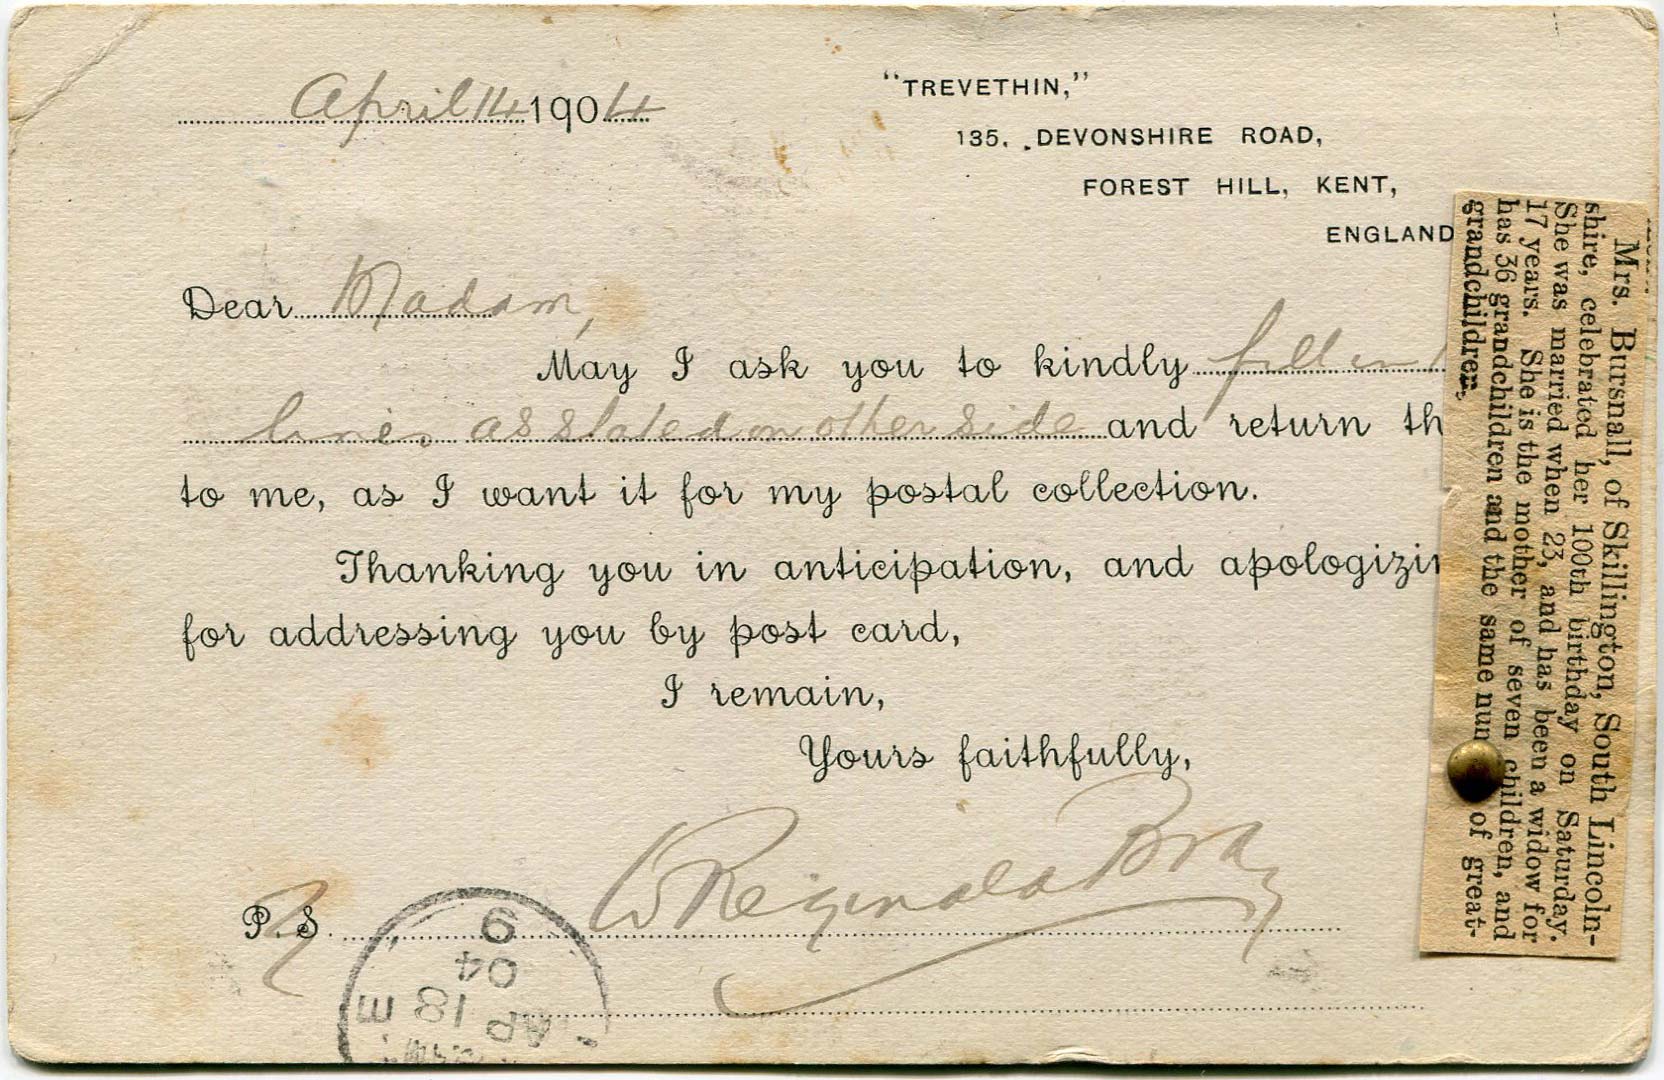 April 14 1904
"TREVETHIN,"
135, DEVONSHIRE ROAD,
FOREST HILL, KENT,
ENGLAND
Dear Madam,
May I ask you to kindly fill in
lines as stated on other side and return th
to me, as I want it for my postal collection.
Thanking you in anticipation, and apologizin
for addressing you by post card,
I remain,
Yours faithfully,
W Reginald Bray
P.S.
9
04
AP 18 E
Mrs. Bursnall, of Skillington, South Lincoln-
shire, celebrated her 100th birthday on Saturday.
She was married when 23, and has been a widow for
17 years. She is the mother of seven children, and
has 36 grandchildren and the same num of great-
grandchildren.